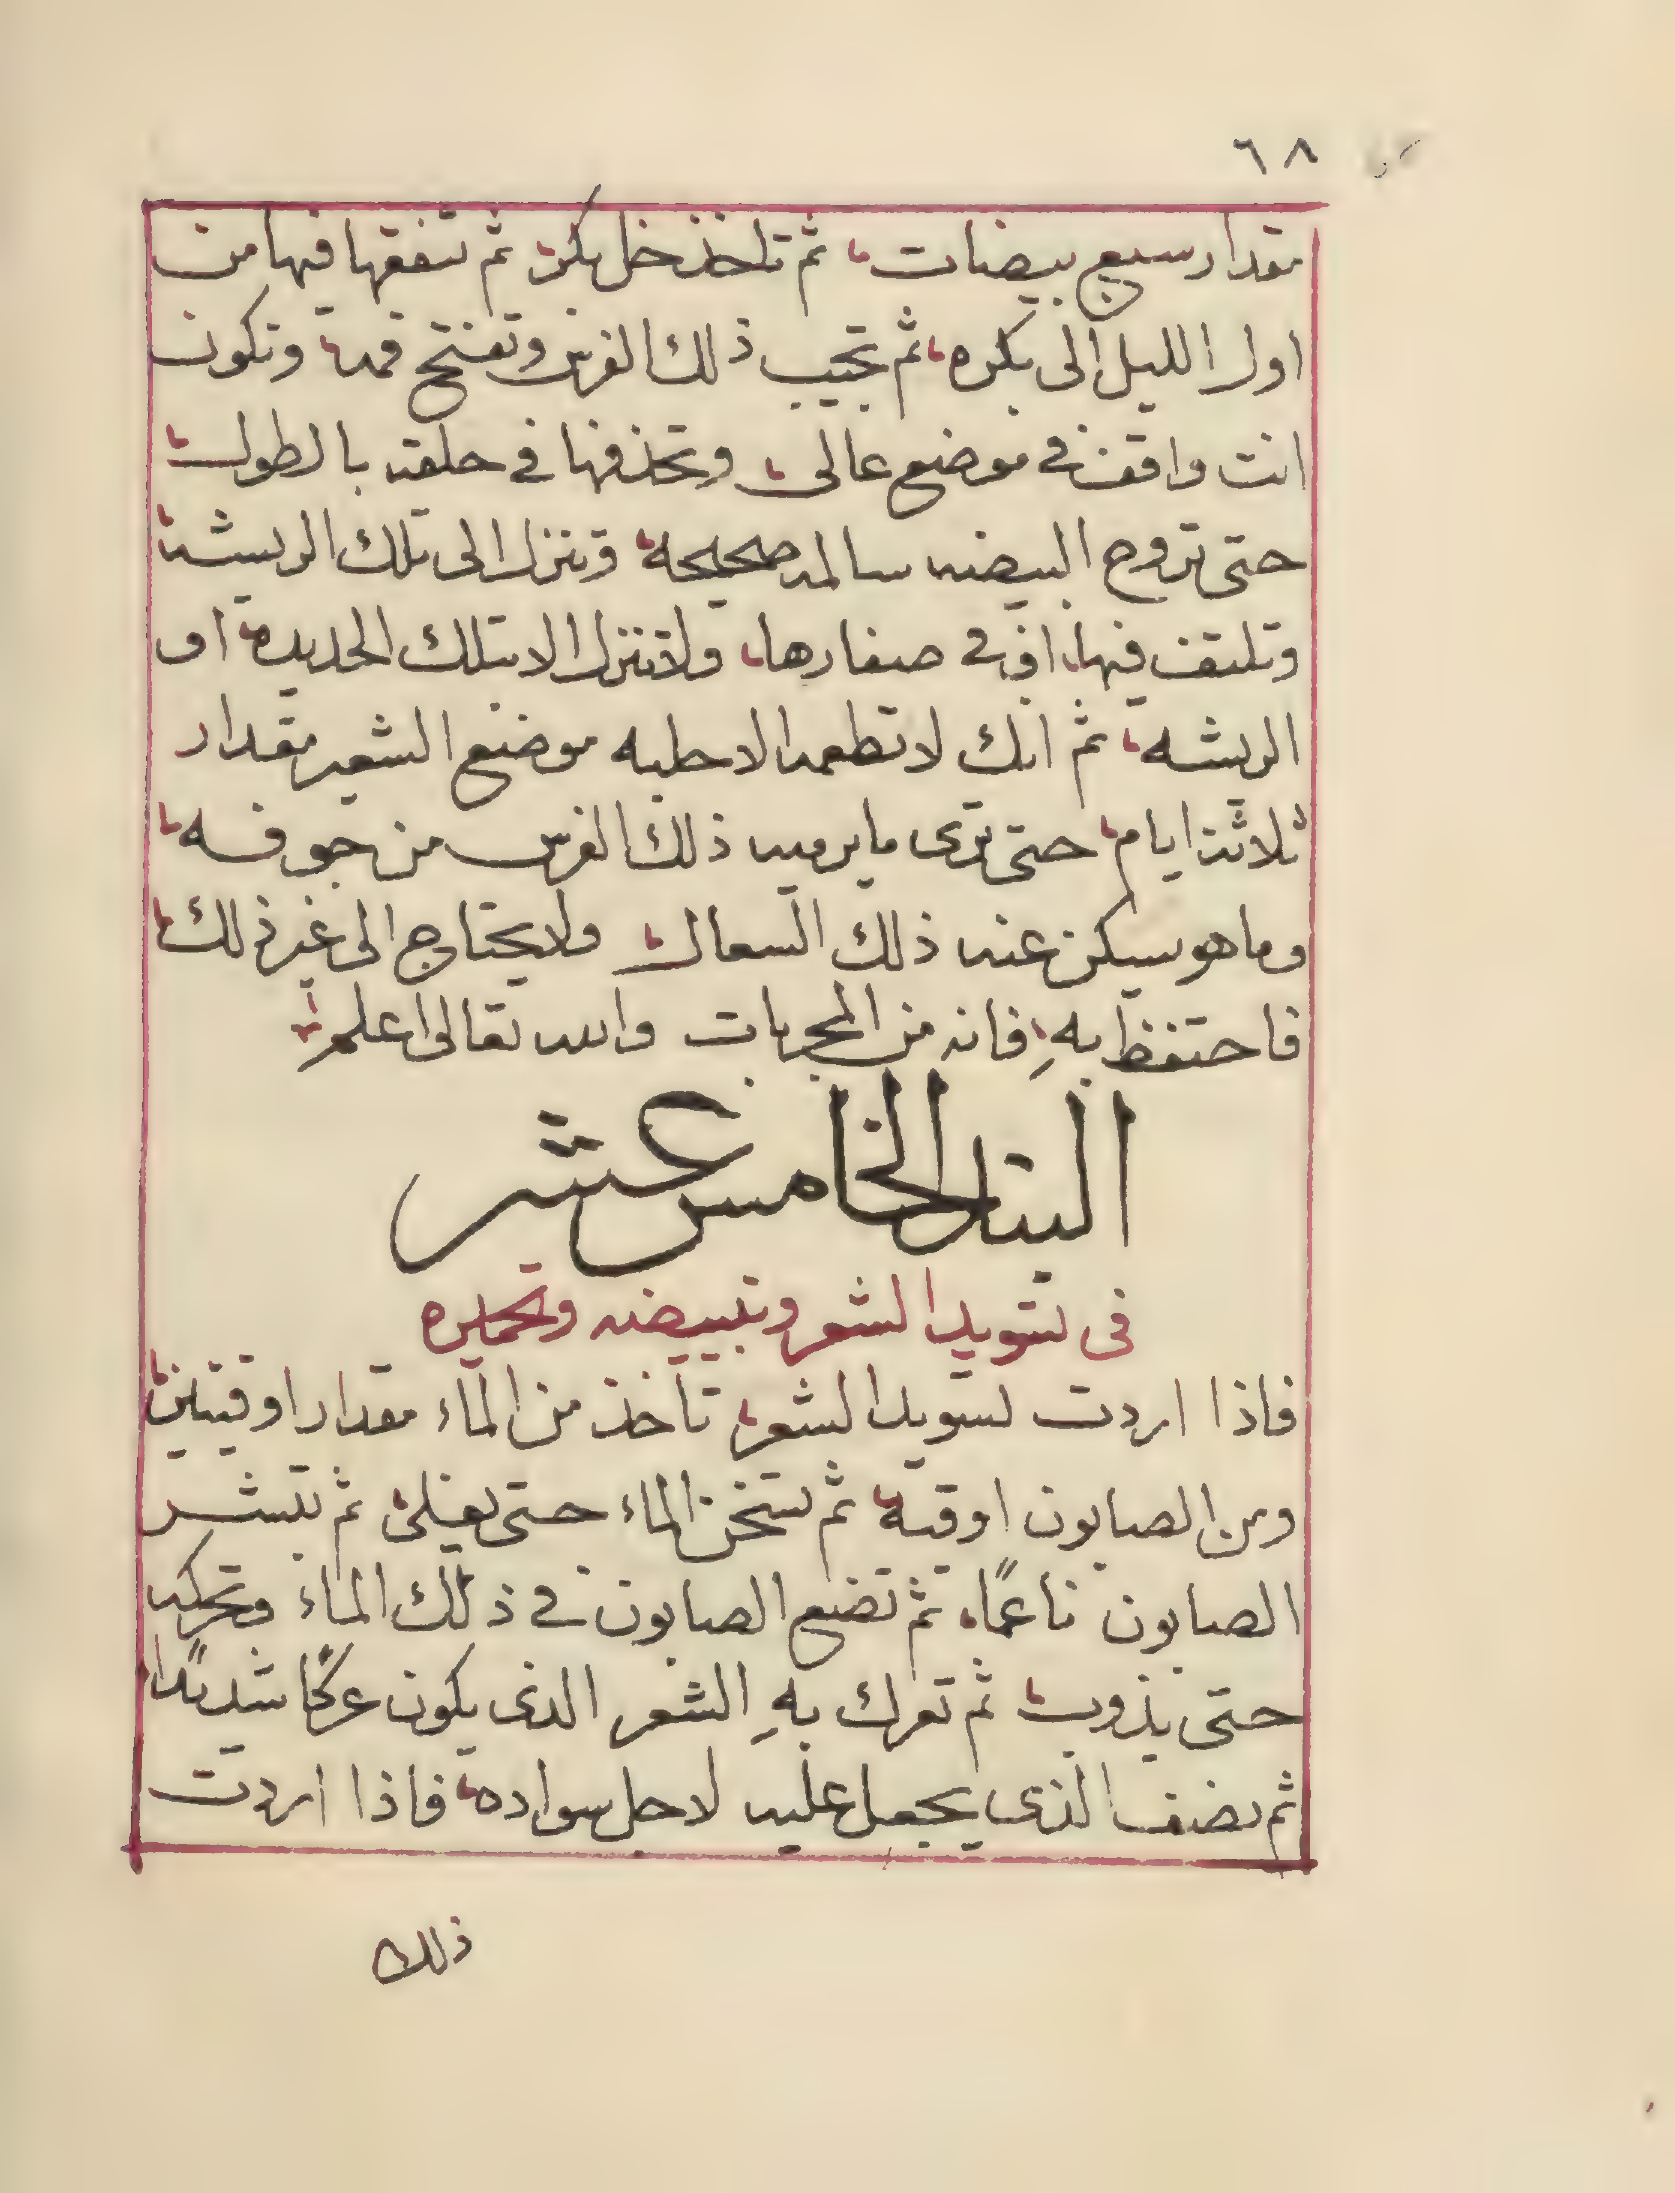 ٦٨
مقدار سبع بيضات، ثم تاخذ خل بكر ثم تنقعها فيها من
اول الليل الى بكره، ثم تجيب ذلك الفرس وتفتح فمه، وتكون
انت واقف في موضع عالى، وتحذفها في حلقه بالطول،
حتى تروح البيضه سالمه صحيحة، وتنزل الى تلك الريشه،
وتلتف فيها، او في صفارها، ولا تنزل الا بتلك الحديده، او
الريشه، ثم انك لا تطعمه الا حلبه موضع الشعير مقدار
ثلاثة ايام، حتى ترى ما يرميه ذلك الفرس من جوفه،
وما هو يسكن عنه ذلك السعال، ولا يحتاج الى غير ذلك،
فاحتفظ بهِ، فانه من المجربات والله تعالى اعلم
الباب الخامس عشر
فى تسويد الشعر وتبييضه وتحميره
فاذا اردت تسويد الشعر، تاخذ من الماء مقدار اوقيتين،
ومن الصابون اوقية، ثم تسخن الماء حتى يغلى، ثم تبشر
الصابون ناعمًا، ثم تضع الصابون في ذلك الماء وتحركه
حتى يذوب، ثم تعرك بهِ الشعر الذى يكون عركًا شديدًا،
ثم تضف الذى يجعل عليه لاجل سواده، فاذا اردت
ذلك